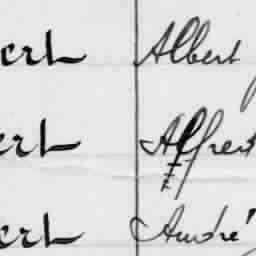 ert Albert
ert Alfred
ert André